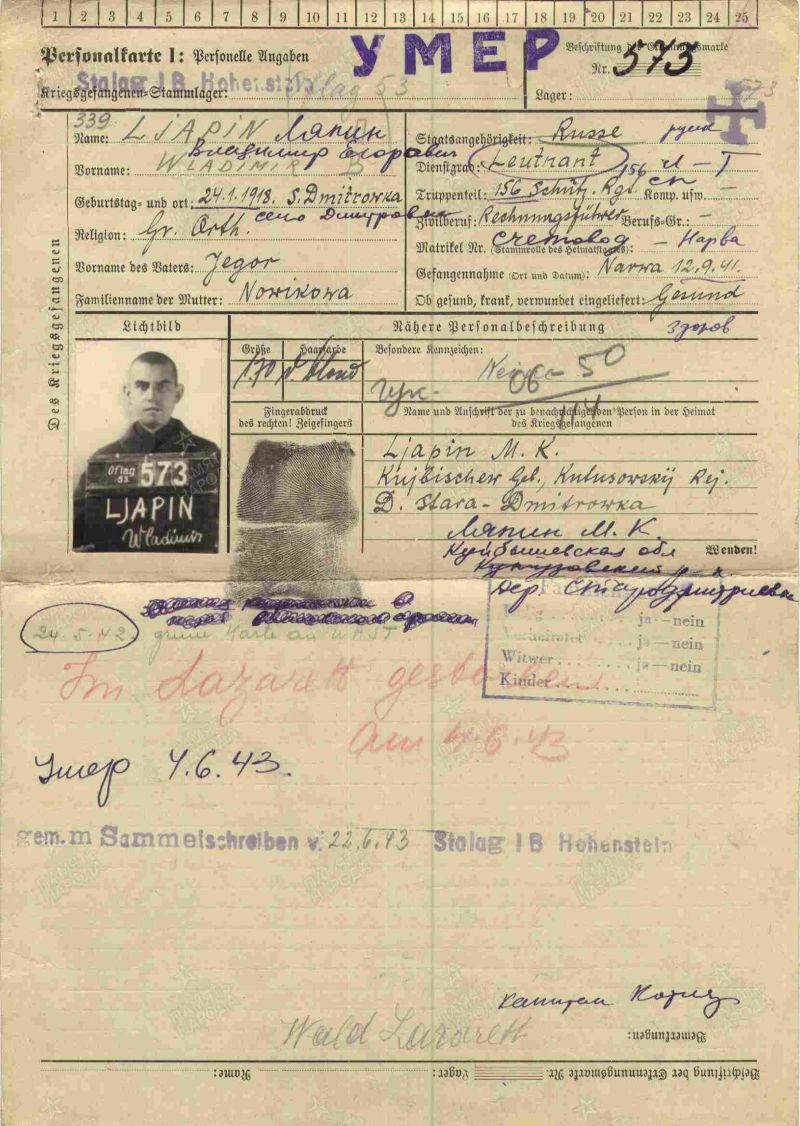 1 2 3 4 5 6 7 8 9 10 11 12 13 14 15 16 17 18 19 20 21 22 23 24 25
Personalkarte I: Personelle Angaben
УМЕР
Beschriftung der Erkennungsmarke
Nr. 573
Stalag I B Hohenstein
Kriegsgefangenen-Stammlager: Oflag 53
Lager:
573
Des Kriegsgefangenen
339
Name: LJAPIN Ляпин
Владимир Егорович
Vorname: WLADIMIR
Geburtstag- und ort: 24.1.1918. S. Dmitrowka
село Дмитровка
Religion: Gr. Orth.
Vorname des Vaters: Jegor
Familienname der Mutter: Nowikowa
Staatsangehörigkeit: Russe
Dienstgrad: Leutnant
Truppenteil: 156 Schütz. Rgt. Komp. usw. –
156 сп
Zivilberuf: Rechnungsführer Berufs-Gr.: –
счетовод – Нарва
Matrikel Nr. (Stammrolle des Heimatstaates):
Gefangennahme (Ort und Datum): Narwa 12.9.41.
Ob gesund, krank, verwundet eingeliefert: Gesund
здоров
Lichtbild
Nähere Personalbeschreibung
Größe Haarfarbe Besondere Kennzeichen:
170 d. blond
06 - 50
Fingerabdruck
des rechten! Zeigefingers
Name und Anschrift der zu benachrichtigenden Person in der Heimat
des Kriegsgefangenen
Oflag
53 573
LJAPIN
Wladimir
Ljapin M. K.
Kujbischew Geb., Kutusowskij Rej.
D. Stara-Dmitrowka
Ляпин М. К.
Куйбышевская обл
Wenden!
Кутузовский р-н
дер.
24.5.42 grüne Karte an WASt
ja — nein
Verheiratet ja — nein
Witwer ja — nein
Kinder
Im Lazarett gestorben
am 4.6.43
Умер 4.6.43.
gem. m Sammelschreiben v. 22.6.43 Stalag I B Hohenstein
капитан
Wald Lazarett
Bemerkungen:
Beschriftung der Erkennungsmarke Nr. Lager: Name: